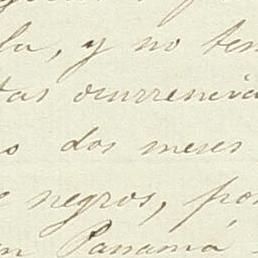 la, y no ten
tas ocurrencia
o dos meses
negros, por
en Panamá